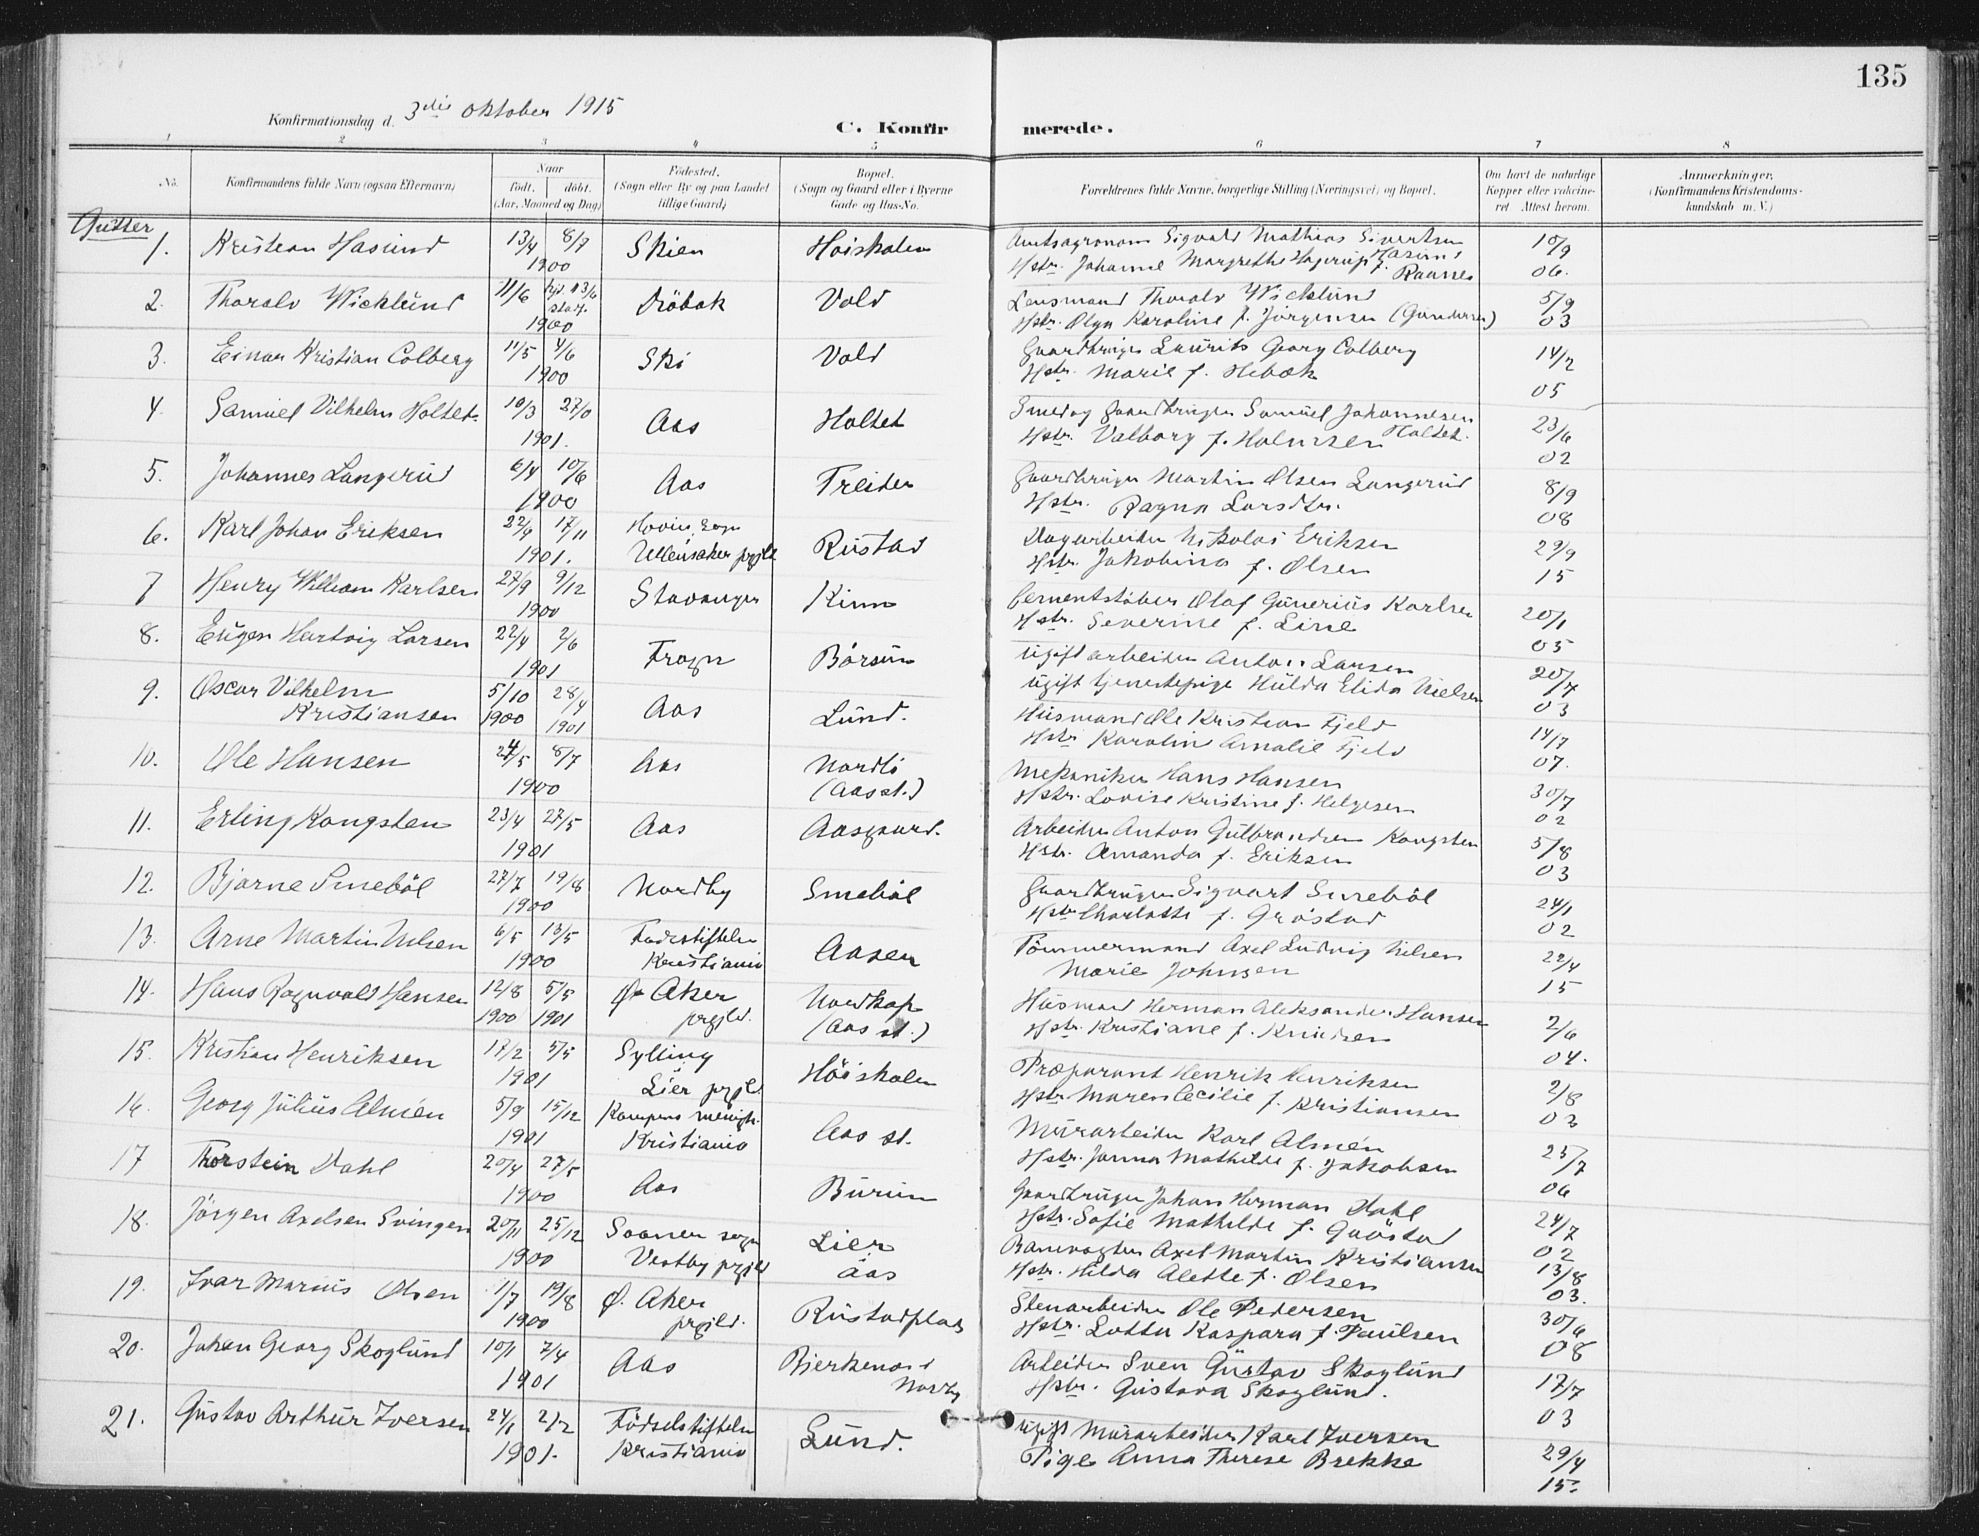 135
Konfirmationsdag d. 3die oktober 1915
C. Konfirmerede.
1 2 3 4 5 6 7 8
No. Konfirmandens fulde Navn (ogsaa Efternavn) Naar født. døbt. (Aar, Maaned og Dag) Fødested. (Sogn eller By og paa Landet tillige Gaard) Bopæl. (Sogn og Gaard eller i Byerne Gade og Hus-No. Forældrenes fulde Navne, borgerlige Stilling (Næringsvei) og Bopæl. Om havt de naturlige Kopper eller vakcineret Attest herom. Anmærkninger. (Konfirmandens Kristendomskundskab m. V.)
Gutter
1. Kristian Hasund 13/4 8/7 1900 Skien Høiskolen Amtsagronom Sigvald Mathias Sivertsen Hasund
Hstr. Johanne Margrethe Hagerup f. Raanes 10/9 06.
2. Thoralv Wicklund 11/6 hjd. 13/6 1900 Drøbak Vold Lensmand Thoralv Wicklund
Hstr. Olga Karoline f. Jørgensen (Gundersen) 5/9 03
3. Einar Kristian Colberg 11/5 4/6 1900 Ski Vold Gaardbruger Laurits Georg Colberg
Hstr. Marie f. Hebæk 14/2 05
4. Samuel Vilhelm Holtet. 10/3 27/0 1901. Aas Holtet Smed og gaardbruger Samuel Johannesen Holtet.
Hstr. Valborg f. Halvorsen 23/6 02
5. Johannes Langerud 6/4 10/6 1900 Aas Treider Gaardbruger Martin Olsen Langerud
Hstr. Ragna Larsdtr. 8/9 08
6. Karl Johan Eriksen 22/9 17/11 1901. Hovin sogn Ullensaker prgjld Rustad Dagarbeider Nikolai Eriksen
Hstr. Jakobina f. Olsen 29/9 15
7 Henry William Karlsen 27/9 9/12 1900 Stavanger Kinn Cementstøber Olaf Gunerius Karlsen
Hstr. Severine f. Line 20/1 05
8. Eugen Hartvig Larsen 22/4 2/6 1901 Frogn Børsum Ugift arbeider Anton Larsen
ugift tjenestepige Hulda Elida Nielsen 20/7 03
9. Oscar Vilhelm Kristiansen 5/10 1900 28/4 1901 Aas Lund. Husmand Ole Kristian Fjeld
Hstr. Karolin Amalie Fjeld 14/7 07.
10. Ole Hansen 24/5 8/7 1900 Aas Nordli (Aas st.) Mekaniker Hans Hansen
Hstr. Lovise Kristine f. Helgesen 30/7 02
11. Erling Kongsten 23/4 27/5 1901 Aas Aasgaard. Arbeider Anton Gulbrandsen Kongsten
Hstr. Amanda f. Eriksen 5/8 03
12. Bjarne Smebøl 27/7 19/8 1900 Nordby Smebøl Gaardbruger Sigvart Smebøl
Hstr Charlotte f. Grøstad 24/1 02
13. Arne Martin Nilsen 6/5 13/5 1900 Fødestiftelsen Kristiania Aasen Tømmermand Axel Ludvig Nilsen
Marie Johnsen 22/4 15
14. Hans Ragnvald Hansen 12/8 1900 5/5 1901 Ø. Aker prgjld. Nordkap (Aas st.) Husmand Herman Aleksander Hansen
Hstr. Kristiane f. Knudsen 2/6 04.
15. Kristian Henriksen 17/2 5/5 1901 Sylling Lier prgjld. Høiskolen Præparant Henrik Henriksen
Hstr Maren Cecilie f. Kristiansen 2/8 03
16. Georg Julius Almén 5/9 15/12 1901 Kampens menigh. Kristiania Aas st. Murarbeider Karl Almén
Hstr. Janna Mathilde f. Jakobsen 25/7 06
17 Thorstein Dahl 20/4 27/5 1900 Aas Burum Gaardbruger Johan Herman Dahl
Hstr. Sofie Mathilde f. Grøstad 24/7 02
18. Jørgen Axelsen Svingen 20/11 25/12 1900 Soner sogn Vestby prgjld Lier Aas Banevogter Axel Martin Kristiansen
Hstr. Hilda Alette f. Olsen 13/8 03.
19. Ivar Marius Olsen 1/7 19/8 1900 Ø. Aker prgjld. Rustadplads Stenarbeider Ole Pedersen
Hstr. Lotta Kaspara f. Paulsen 30/6 08
20. Johan Georg Skoglund 10/1 7/4 1901 Aas Bjerkenas i Nordby Arbeider Sven Gustav Skoglund
Hstr. Gustava Skoglund. 17/7 03
21. Gustav Arthur Iversen 24/1 2/2 1901. Fødselstiftelsen Kristiania Lund. ugift Murarbeider Karl Iversen
Pige Anna Therese Brekke 29/4 15.